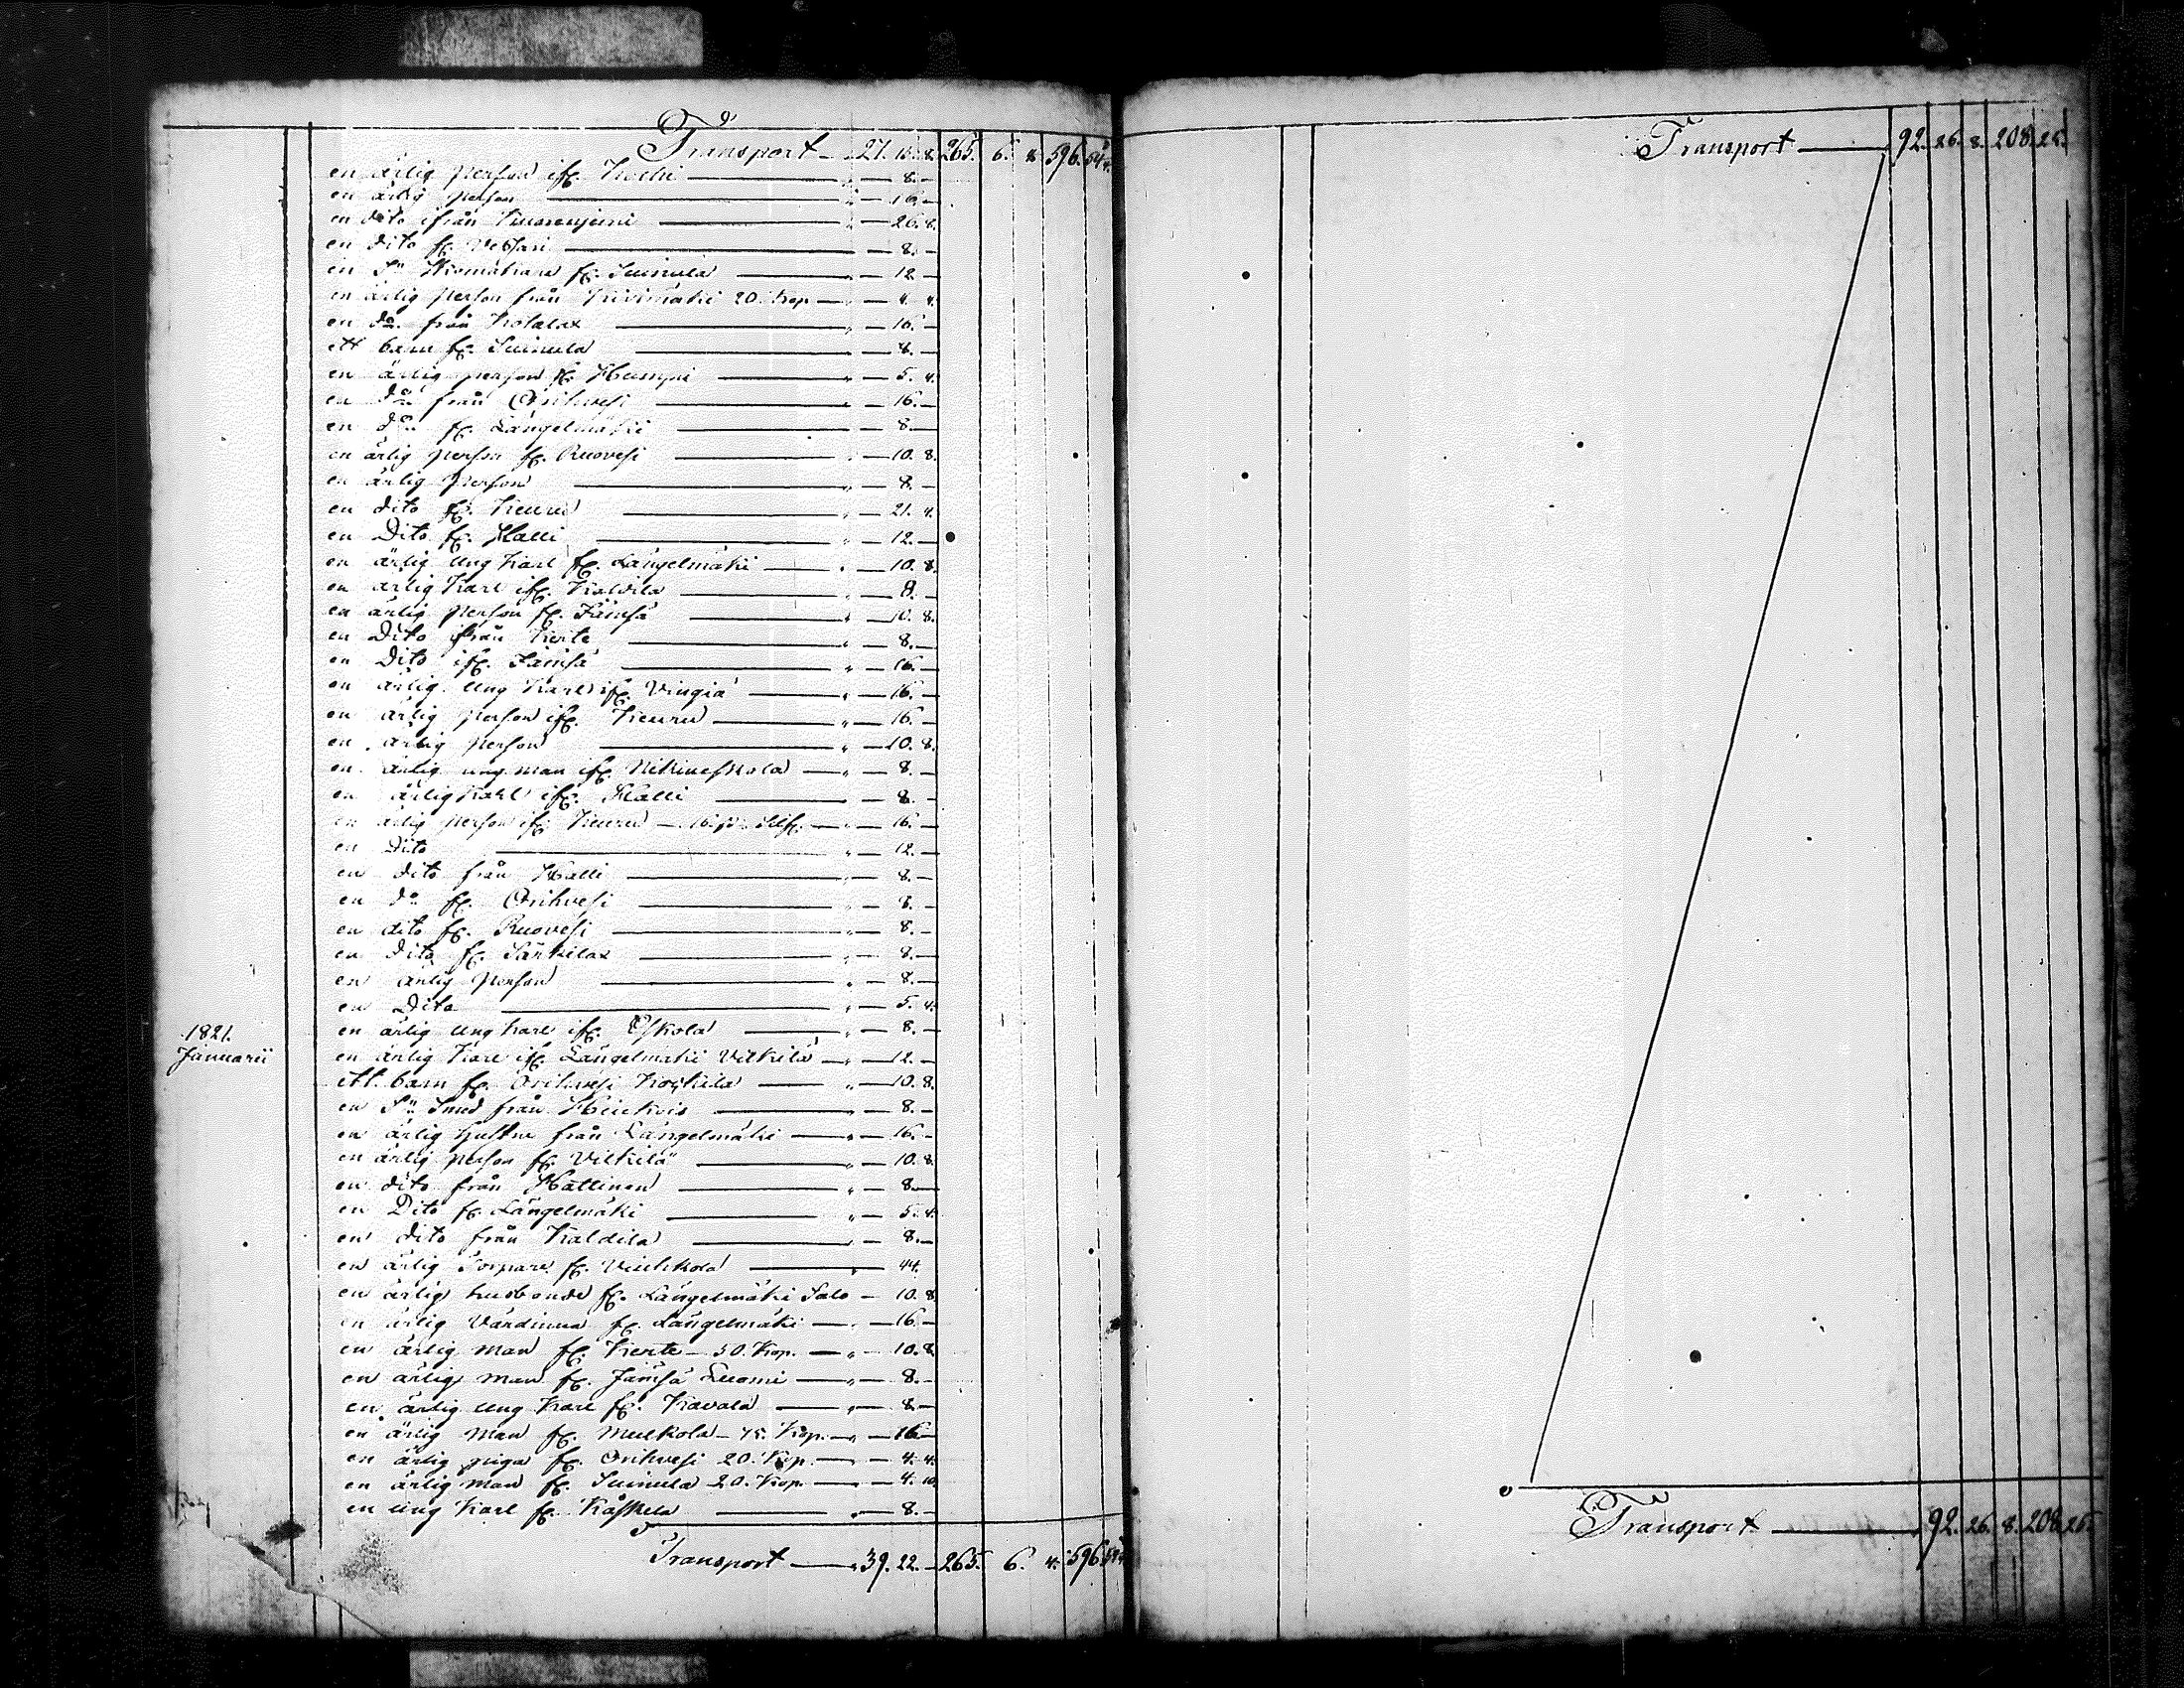 Transport — 27. 15. 8. 265. 6. 8. 596. 54 4.
en ärlig person ifr. Kochi — 8.
en ärlig person — 16.
en dito ifrån Kuorenjemi — 26. 8.
en dito fr. Vessari — 8.
en Sn Skomakare fr. Suinula — 12
en ärlig person från Kivimäki 20. Kop. — 4. 4.
en do. från Kolalax — 16.
ett barn fr. Suinula — 8.
en ärlig person fr. Humpi — 5. 4.
en do. från Orihvesi — 16.
en do. fr. Längelmäki — 8.
en ärlig person fr. Ruovesi — 10. 8.
en ärlig person — 8.
en dito fr. Keuru — 21. 4.
en Dito fr. Halli — 12.
en ärlig ung Karl fr. Längelmäki — 10. 8.
en ärlig Karl ifr. Kaldila — 8.
en ärlig person fr. Jämsä — 10. 8.
en Dito ifrån Kerte — 8.
en Dito ifr. Jämsä — 16.
en ärlig ung Karl ifr. Vingiä — 16.
en ärlig person ifr. Keuru — 16.
en ärlig person — 10. 8.
en ärlig ung man ifr. — 8.
en ärlig Karl ifr. Halli — 8.
en ärlig person ifr. Keuru — 16. — 16.
en Dito — 12.
en dito från Halli — 8.
en do. fr. Orihvesi — 8.
en dito fr. Ruovesi — 8.
en Dito fr. Särkilax — 8.
en ärlig person — 8.
en Dito — 5. 4.
1821.
Januarii
en ärlig ung karl ifr. Eskola — 8.
en ärlig Karl ifr. Längelmäki Vilkilä — 12.
ett barn fr. Orihvesi Koskila — 10. 8.
en Sn Smed från — 8.
en ärlig hustru från Längelmäki — 16.
en ärlig person fr. Vilkilä — 10. 8.
en dito från Hallinen — 8.
en Dito fr. Längelmäki — 5. 4.
en dito från Kaldila — 8.
en ärlig Torpare fr. — 44.
en ärlig husbonde fr. Längelmäki Salo — 10. 8.
en ärlig Värdinna fr. Längelmäki — 16.
en ärlig man fr. Kerte — 50. Kop. — 10. 8.
en ärlig man fr. Jämsä Luomi — 8.
en ärlig ung Karl fr. Kavala — 8.
en ärlig man fr. Muckola — 75. Kop. — 16
en ärlig piga fr. Orihvesi 20. Kop. — 4. 4.
en ärlig man fr. Suinula 20. Kop. — 4. 10.
en ung Karl fr. Kåskela — 8.
Transport — 39. 22. — 265. 6. 4. 596.
Transport — 92. 26. 8. 208. 25.
Transport — 92. 26. 8. 208. 25.